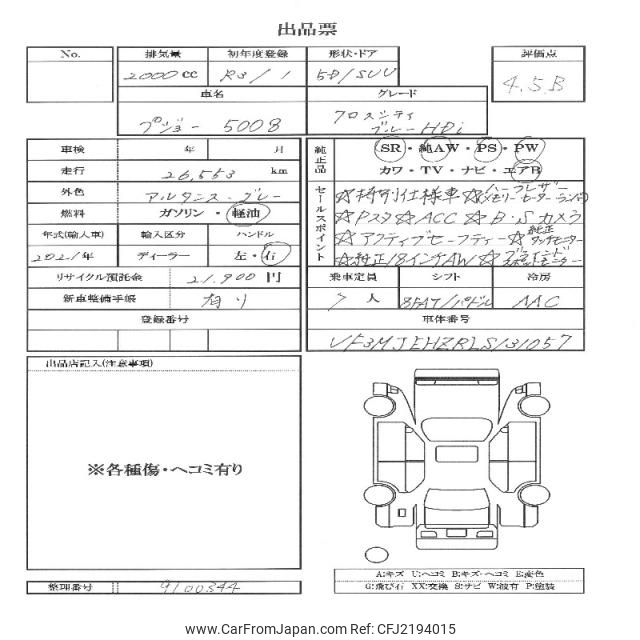 出品票
No. 排気量 初年度登録 形状・ドア 評価点
2000 cc R3/1 5D/SUV 4.5B
車名 グレード
プジョー 5008 クロスシティ
ブルーHDi
車検 年 月
走行 26,553 km
外色 アルタニス・グレー
燃料 ガソリン ・ 軽油
年式(輸入車) 輸入区分 ハンドル
2021年 ディーラー 左・右
リサイクル預託金 21,900 円
新車整備手帳 有り
登録番号
純正品 SR・純AW・PS・PW
カワ・TV・ナビ・エアB
セールスポイント ☆特別仕様車☆ハーフレザー
メモリーヒーター
☆Pスタ☆ACC☆B・Sカメラ
☆アクティブセーフティー☆純正
タッチモニター
☆純正18インチAW☆ブラインド
スポットモニター
乗車定員 シフト 冷房
7 人 8FAT/パドル AAC
車体番号
VF3MJEHZRLS131057
出品店記入(注意事項)
※各種傷・ヘコミ有り
整理番号 9100344
A:キズ U:ヘコミ B:キズ・ヘコミ E:変色
G:飛び石 XX:交換 S:サビ W:波有 P:塗装
www.CarFromJapan.com | CFJ2194015